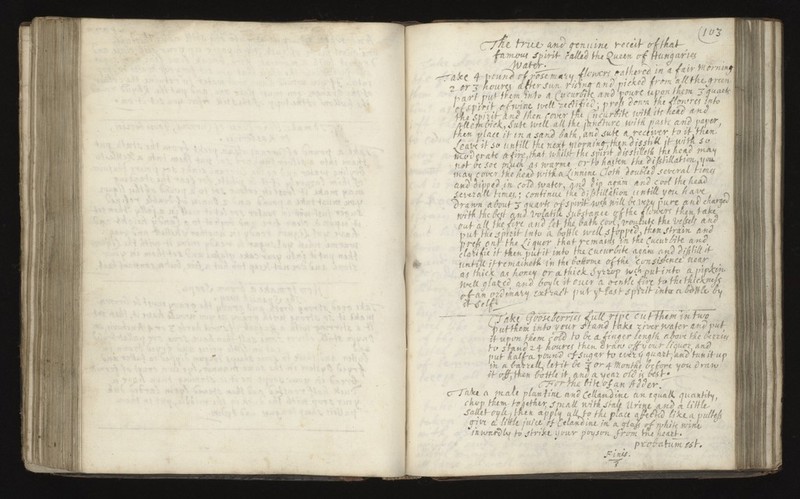 103
The true and genuine receit of that
famous spirit Called the Queen of Hungaries
Water.
Take 4 pound of rosemary flowers gathered in a fair Morning
2 or 3 houres after sun rising and picked from all the green
part put them into a Cucurbite and poure upon them 3 quarts
of spirit of wine well rectified; press down the flowres into
the spirit and then cover the Cucurbite with its head and
Allembeck, lute well all the juncture with paste and paper,
then place it in a sand bath, and lute a receiver to it, then
Leave it so untill the next morning; then distill it with so
moderate a fire, that whilst the spirit distilleth the head may
not be soe much as warme or to hasten the distillation, you
may cover the head with a Linnine Cloth doubled severall times
and dipped in cold water, and dip again and cool the head
severall times; continue the distillation untill you have
drawn about 3 quarts of spirit wch will be very pure and charged
with the best and volatile substance of the flowers then take
out all the fire and let the bath cool, the vessels and
put the spirit into a bottle well stopped; then strain and
press out the Liquor that remaines in the Cucurbite and
clarifie it then put it into the Cucurbite again and distill it
untill it remaineth in the bottome of the Consistence near
as thick as honey or a thick Syrrop wch put into a pipkin
well glazed and boyle it over a gentle fire to the thickness
of an ordinary extract put ye last spirit into a bottle by
it self
Take Gooseberries full ripe cut them in two
put them into your stand take river water and put
it upon them cold to be a finger length above the berries
to stand 24 houres then draw off your liquor, and
put half a pound of sugar to every quart, and tun it up
in a barrell, let it be 3 or 4 months before you draw
it off, then bottle it, and a year old is best.
For the bite of an Adder.
Take a male plantine and Cellandine an equall quantity,
chop them together small with stale Urine and a little
sallet oyle; then apply all to the place affected like a pultess
give a little juice of Celandine in a glass of white wine
inwardly to strike your poyson from the heart.
probatum est.
Finis.